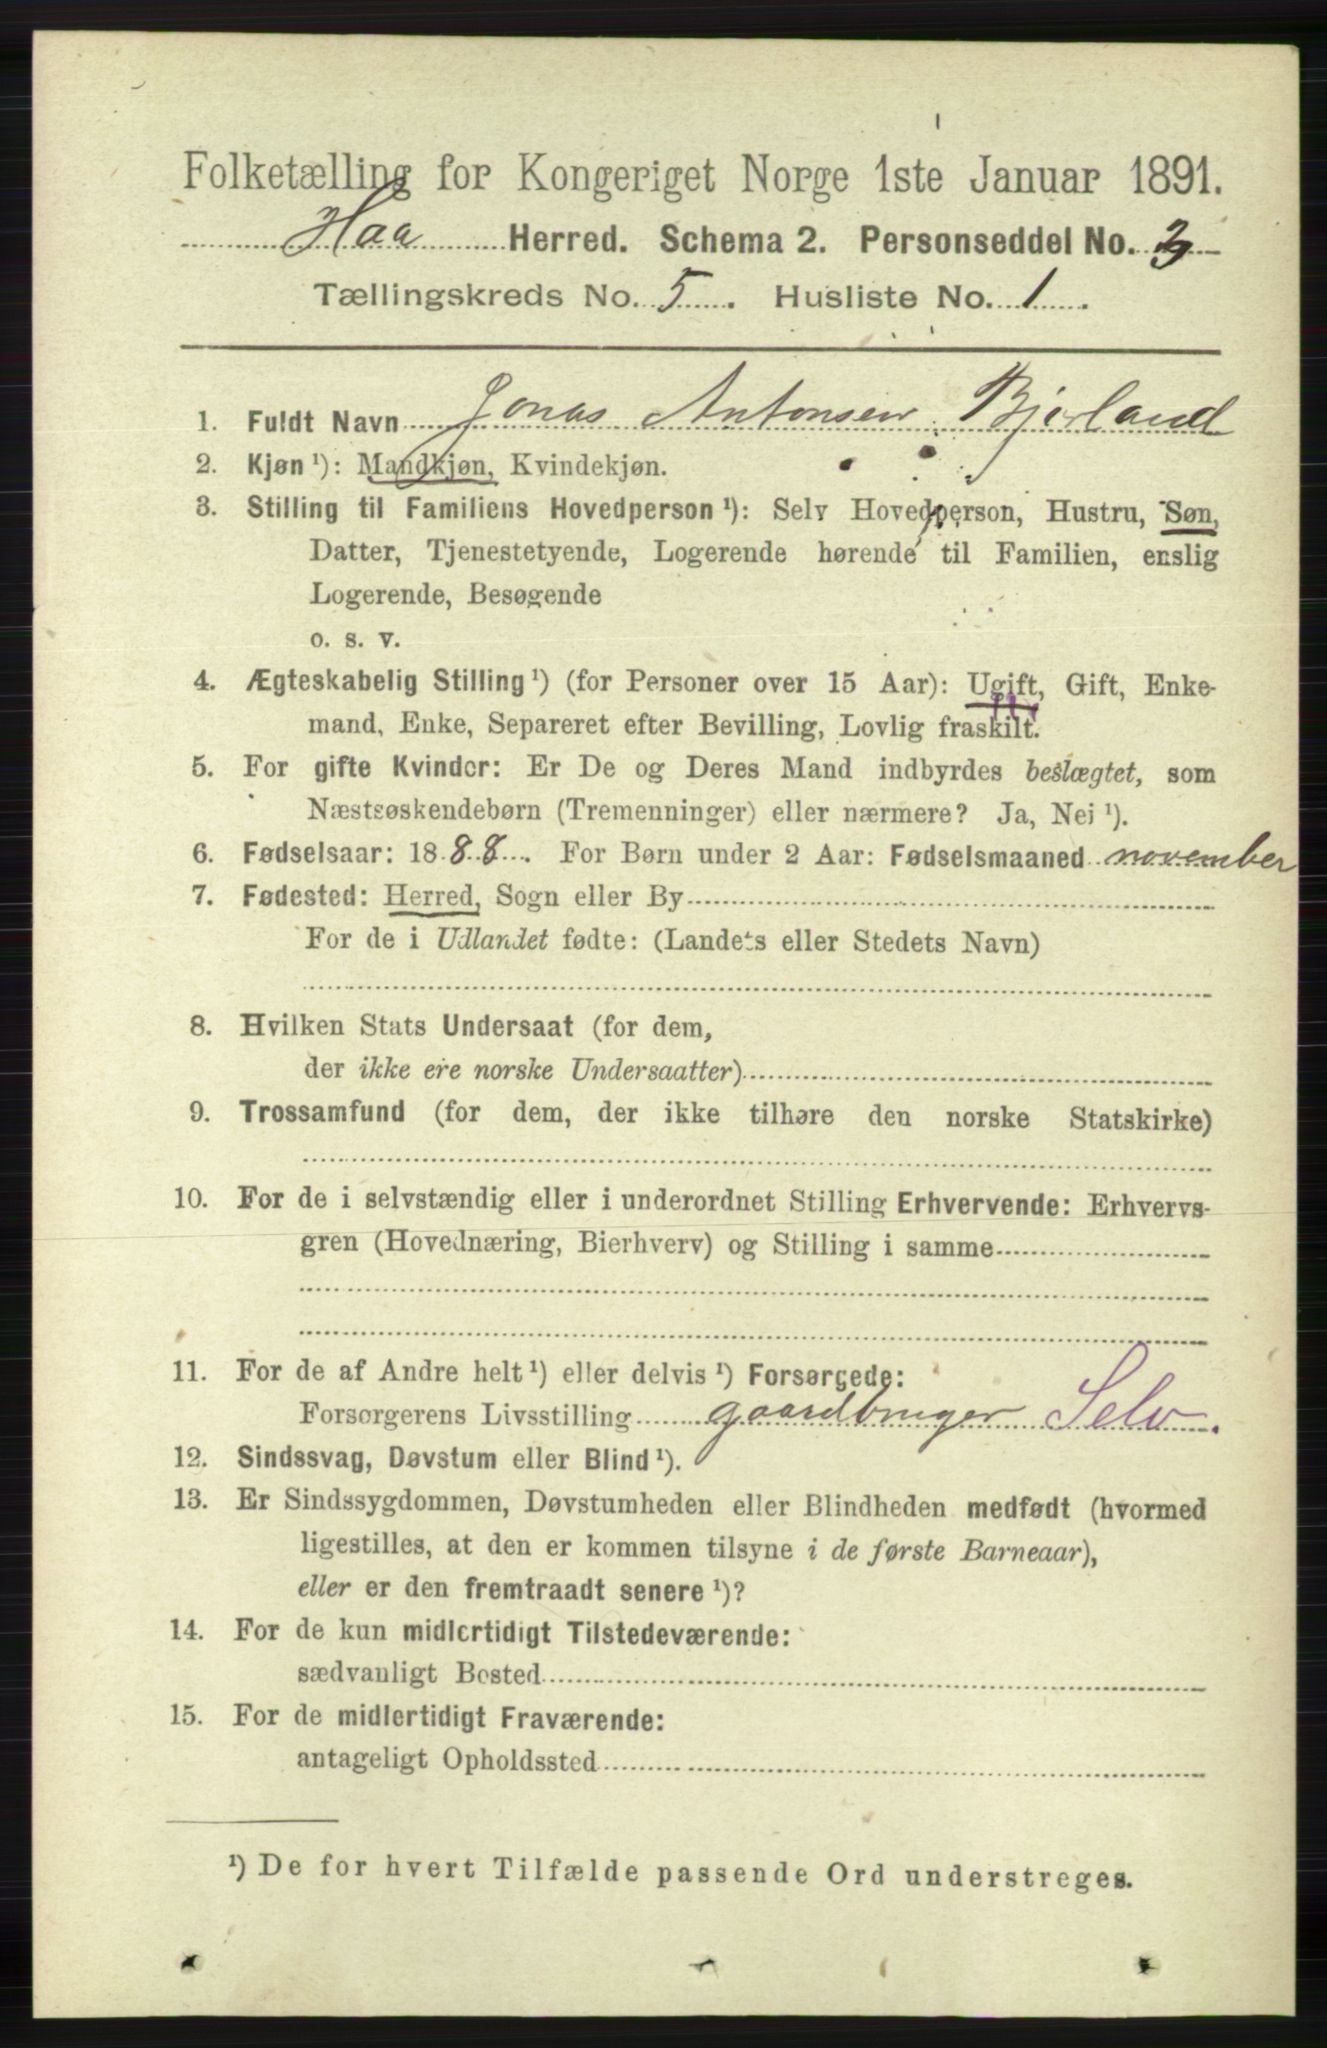 Folketælling for Kongeriget Norge 1ste Januar 1891.
Haa Herred. Schema 2. Personseddel No. 3
Tællingskreds No. 5. Husliste No. 1.
1. Fuldt Navn Jonas Antonsen Bjorland
2. Kjøn ¹): Mandkjøn, Kvindekjøn.
3. Stilling til Familiens Hovedperson ¹): Selv Hovedperson, Hustru, Søn,
Datter, Tjenestetyende, Logerende hørende til Familien, enslig
Logerende, Besøgende
o. s. v.
4. Ægteskabelig Stilling ¹) (for Personer over 15 Aar): Ugift, Gift, Enke-
mand, Enke, Separeret efter Bevilling, Lovlig fraskilt.
5. For gifte Kvinder: Er De og Deres Mand indbyrdes beslægtet, som
Næstsøskendebørn (Tremenninger) eller nærmere? Ja, Nei ¹).
6. Fødselsaar: 1888. For Børn under 2 Aar: Fødselsmaaned november
7. Fødested: Herred, Sogn eller By
For de i Udlandet fødte: (Landets eller Stedets Navn)
8. Hvilken Stats Undersaat (for dem,
der ikke ere norske Undersaatter)
9. Trossamfund (for dem, der ikke tilhøre den norske Statskirke)
10. For de i selvstændig eller i underordnet Stilling Erhvervende: Erhvervs-
gren (Hovednæring, Bierhverv) og Stilling i samme
11. For de af Andre helt ¹) eller delvis ¹) Forsørgede:
Forsørgerens Livsstilling gaardbruger Selv.
12. Sindssvag, Døvstum eller Blind ¹).
13. Er Sindssygdommen, Døvstumheden eller Blindheden medfødt (hvormed
ligestilles, at den er kommen tilsyne i de første Barneaar),
eller er den fremtraadt senere ¹)?
14. For de kun midlertidigt Tilstedeværende:
sædvanligt Bosted
15. For de midlertidigt Fraværende:
antageligt Opholdssted
¹) De for hvert Tilfælde passende Ord understreges.